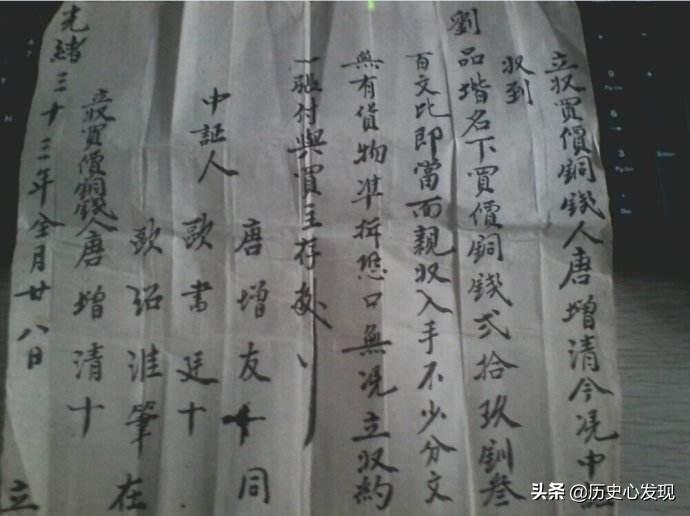 立収買價銅錢人唐增清今凴中証
収到
劉品堦名下買價銅錢弍拾玖釧叁
百文比即當面親収入手不少分文
無有貨物凖拆恐口無凴立収約
一張付與買主存處
唐增友十同
中証人歐書廷十
歐紹淮筆在
立収買價銅錢人唐增清十
光緒三十三年全月廿八日立
头条@历史心发现